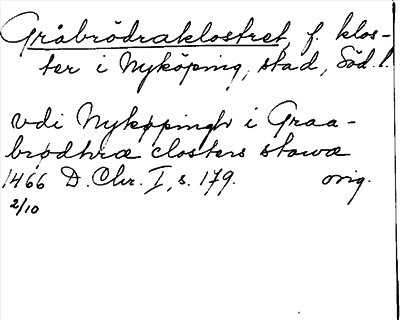 Gråbrödraklostret, f. klos-
ter i Nyköping, stad, Söd. l.
vdi Nykøpingh i Graa-
brødhræ closters stowæ
1466 D. Chr. I, s. 179. orig.
2/10